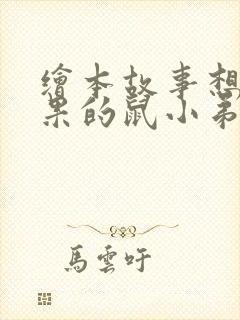 繪本故事想
果的鼠小弟
馬雲吁